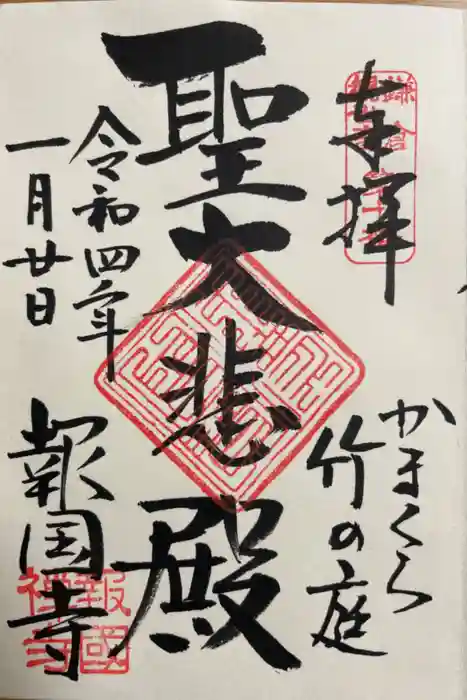 奉拝
かまくら
竹の庭
聖大悲殿
令和四年
一月廿日
報国寺
報國
禅寺